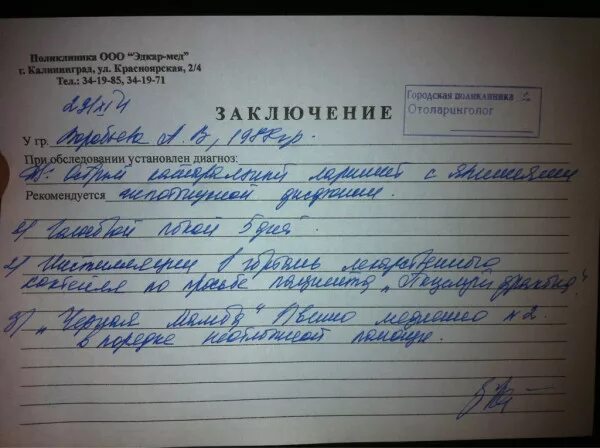 Поликлиника ООО "Эдкар-мед"
г. Калининград, ул. Красноярская, 2/4
Тел.: 34-19-85, 34-19-71
ЗАКЛЮЧЕНИЕ
Городская поликлиника 2
Отоларинголог
У гр. Воробьева А. В, 1987гр.
При обследовании установлен диагноз:
Ds: Острый катаральный ларингит с явлениями
Рекомендуется гипотонусной дисфонии.
1) Голосовой покой 5 дней
2) Инстилляции в гортань лекарственного
коктейля по просьбе пациента „Поцелуй дракона"
3) „Черная мамба" в/венно медленно №2
в порядке неотложной помощи.